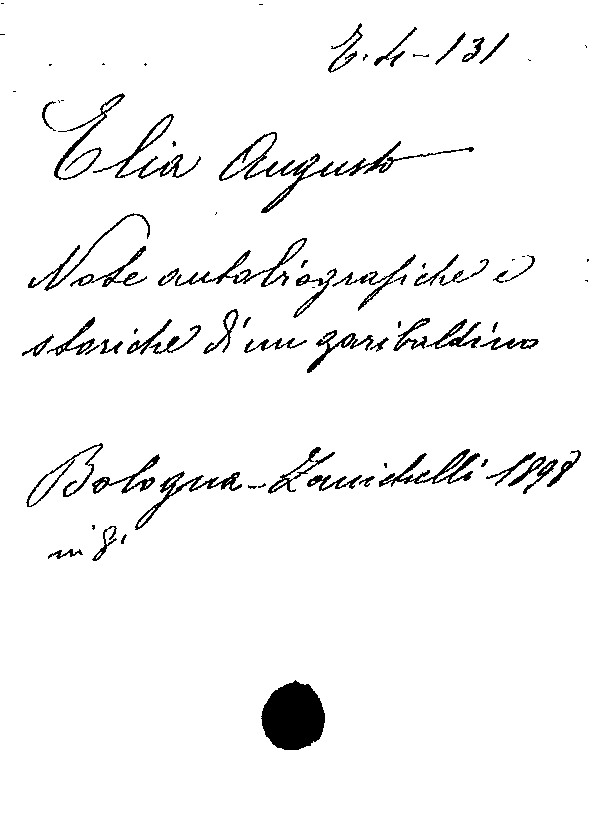 E.4-131
Elia Augusto
Note autobiografiche e
storiche di un garibaldino
Bologna-Zanichelli 1898
in 8°